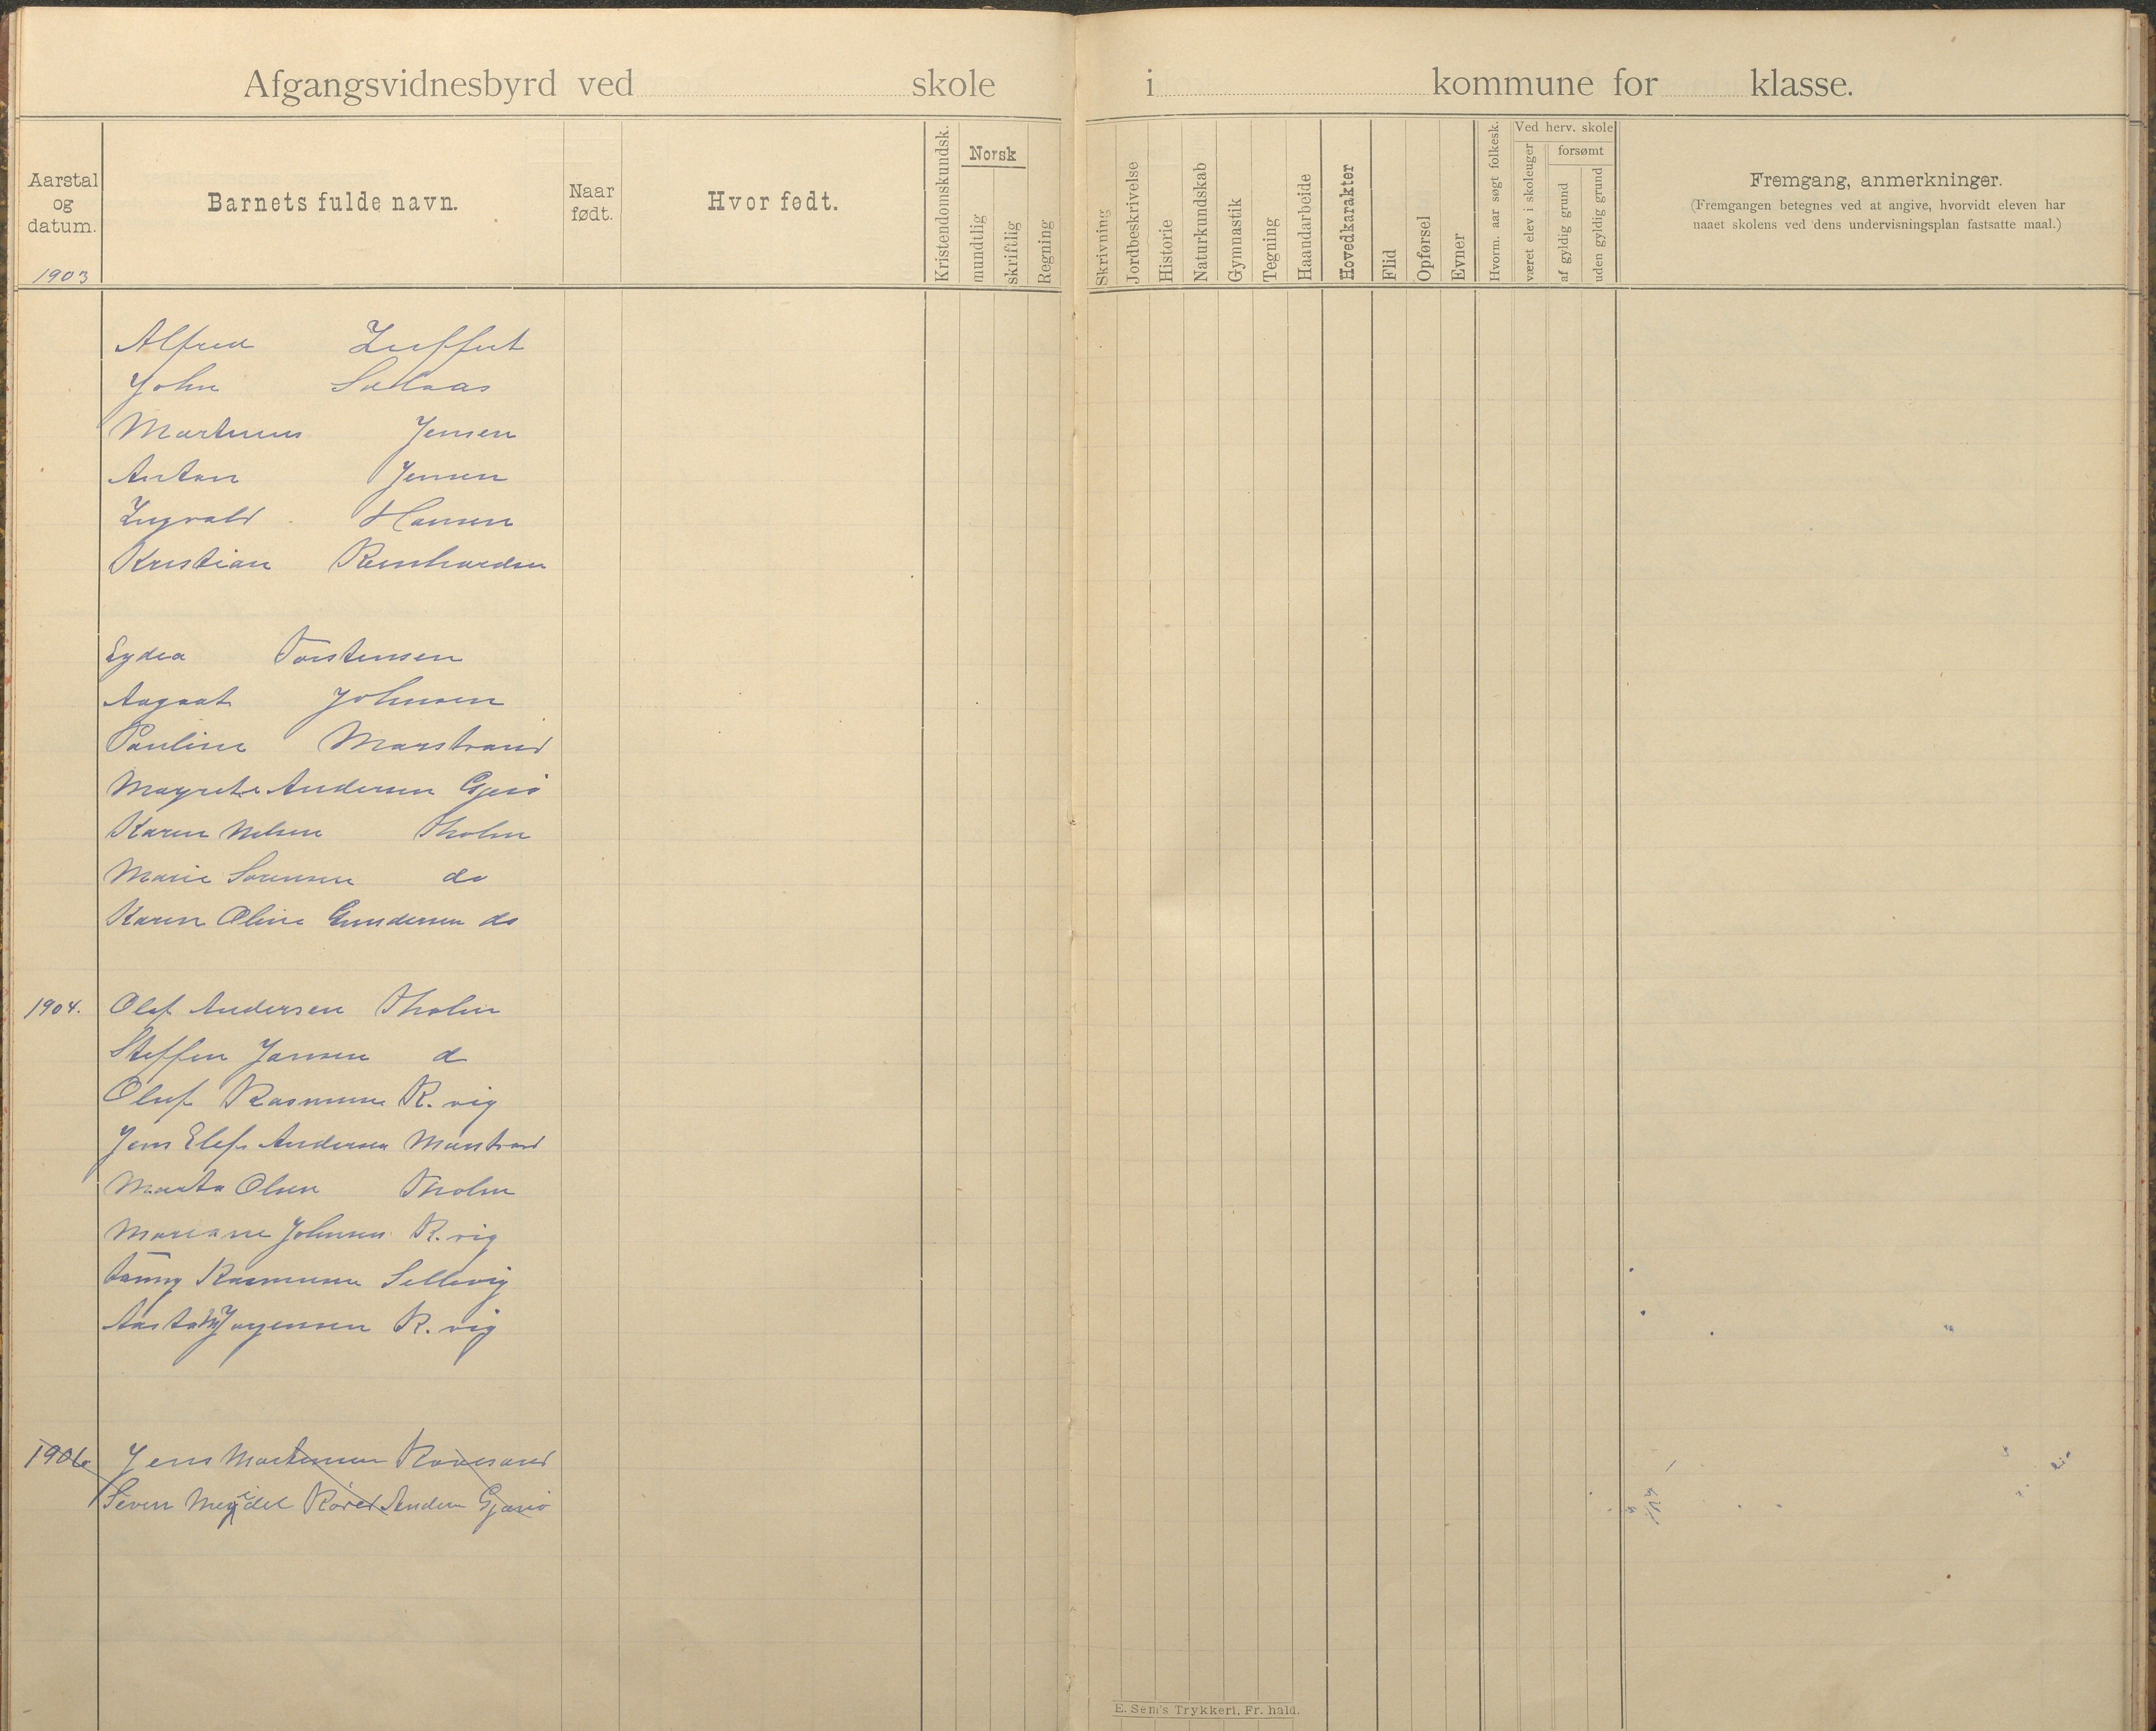 Afgangsvidnesbyrd ved skole i kommune for klasse.
Aarstal og datum.
Barnets fulde navn.
Naar født.
Hvor født.
Kristendomskundsk.
Norsk
mundtlig
skriftlig
Regning
Skrivning
Jordbeskrivelse
Historie
Naturkundskab
Gymnastik
Tegning
Haandarbeide
Hovedkarakter
Flid
Opførsel
Evner
Hvorm. aar søgt folkesk.
Ved herv. skole
været elev i skoleuger
forsømt
af gyldig grund
uden gyldig grund
Fremgang, anmerkninger.
(Fremgangen betegnes ved at angive, hvorvidt eleven har
naaet skolens ved dens undervisningsplan fastsatte maal.)
1903
Alfred
John
Martinius Jensen
Anton Jensen
Ingvald Hansen
Kristian Reinhardsen
Lydia Torstensen
Aagaat Johnsen
Pauline Marstrand
Magrete Andersen Gjesø
Karen Nilsen Tholm
Marie Sørensen do
Karen Oline Gundersen do
1904. Olaf Andersen Tholm
Steffen Jansen d
Oluf Rasmussen R. vig
Jens Elef Andersen Marstrand
Marta Olsen Tholm
Mariane Johnsen R. vig
Fanny Rasmussen Sellevig
Aasta M Jørgensen R. vig
1906 Jens Mortensen
Andersen
E. Sem's Trykkeri, Fr. hald.